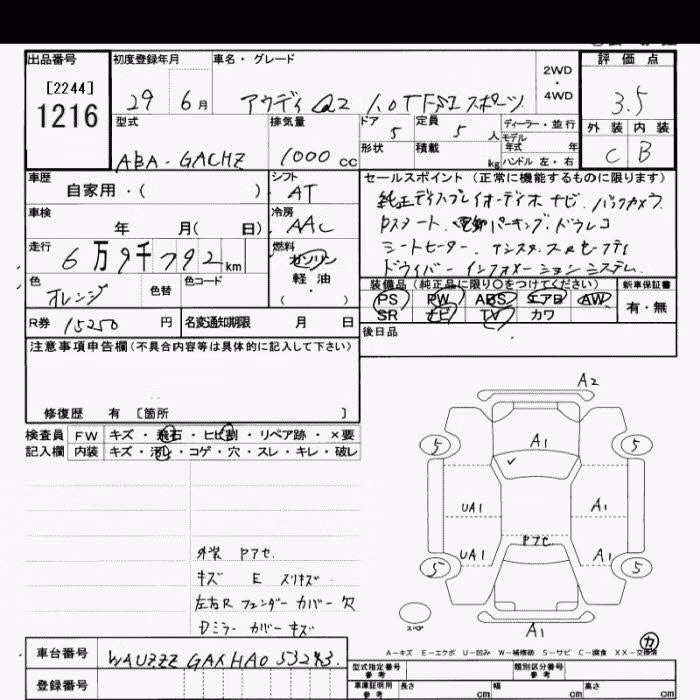 出品番号 初度登録年月 車名・グレード 評価点
[2244] 2WD・4WD
1216 29 6月 アウディ Q2 1.0TFSI スポーツ 3.5
型式 排気量 ドア 5 定員 5人 ディーラー・並行 外装 内装
ABA-GACHZ 1000cc 形状 積載 kg モデル年式 年 C B
ハンドル 左・右
車歴 シフト セールスポイント (正常に機能するものに限ります)
自家用・( ) AT 純正ディスプレイオーディオ ナビ. バックカメラ
車検 冷房 Pスタート. 電動パーキング. ドラレコ
年 月( 日) AAC シートヒーター.
走行 6万9千792km 燃料 ドライバー インフォメーション システム.
ガソリン
軽油
・( )
色 オレンジ 色替 色コード 装備品(純正品に限り〇をつけてください) 新車保証書
PS PW ABS エアB AW 有・無
SR ナビ TV カワ
R券 15250円 名変通知期限 月 日 後日品
注意事項申告欄(不具合内容等は具体的に記入して下さい)
修復歴 有 [箇所 ]
検査員 FW キズ・飛石・ヒビ割・リペア跡・×要
記入欄 内装 キズ・汚れ・コゲ・穴・スレ・キレ・破レ
A2
5 A1 5
UA1 A1
Pアセ.
UA1 A1
5 5
スペア
A1
外装 Pアセ.
キズ E スリキズ
左右R フェンダー カバー 欠
Dミラー カバー キズ
A-キズ E-エクボ U-凹み W-補修跡 S-サビ C-腐食 XX-交換済
カ
車台番号 WAUZZZGAXHA053283.
登録番号
型式指定番号 参考 類別区分番号 参考
車庫証明用 参考 長さ cm 幅 cm 高さ cm